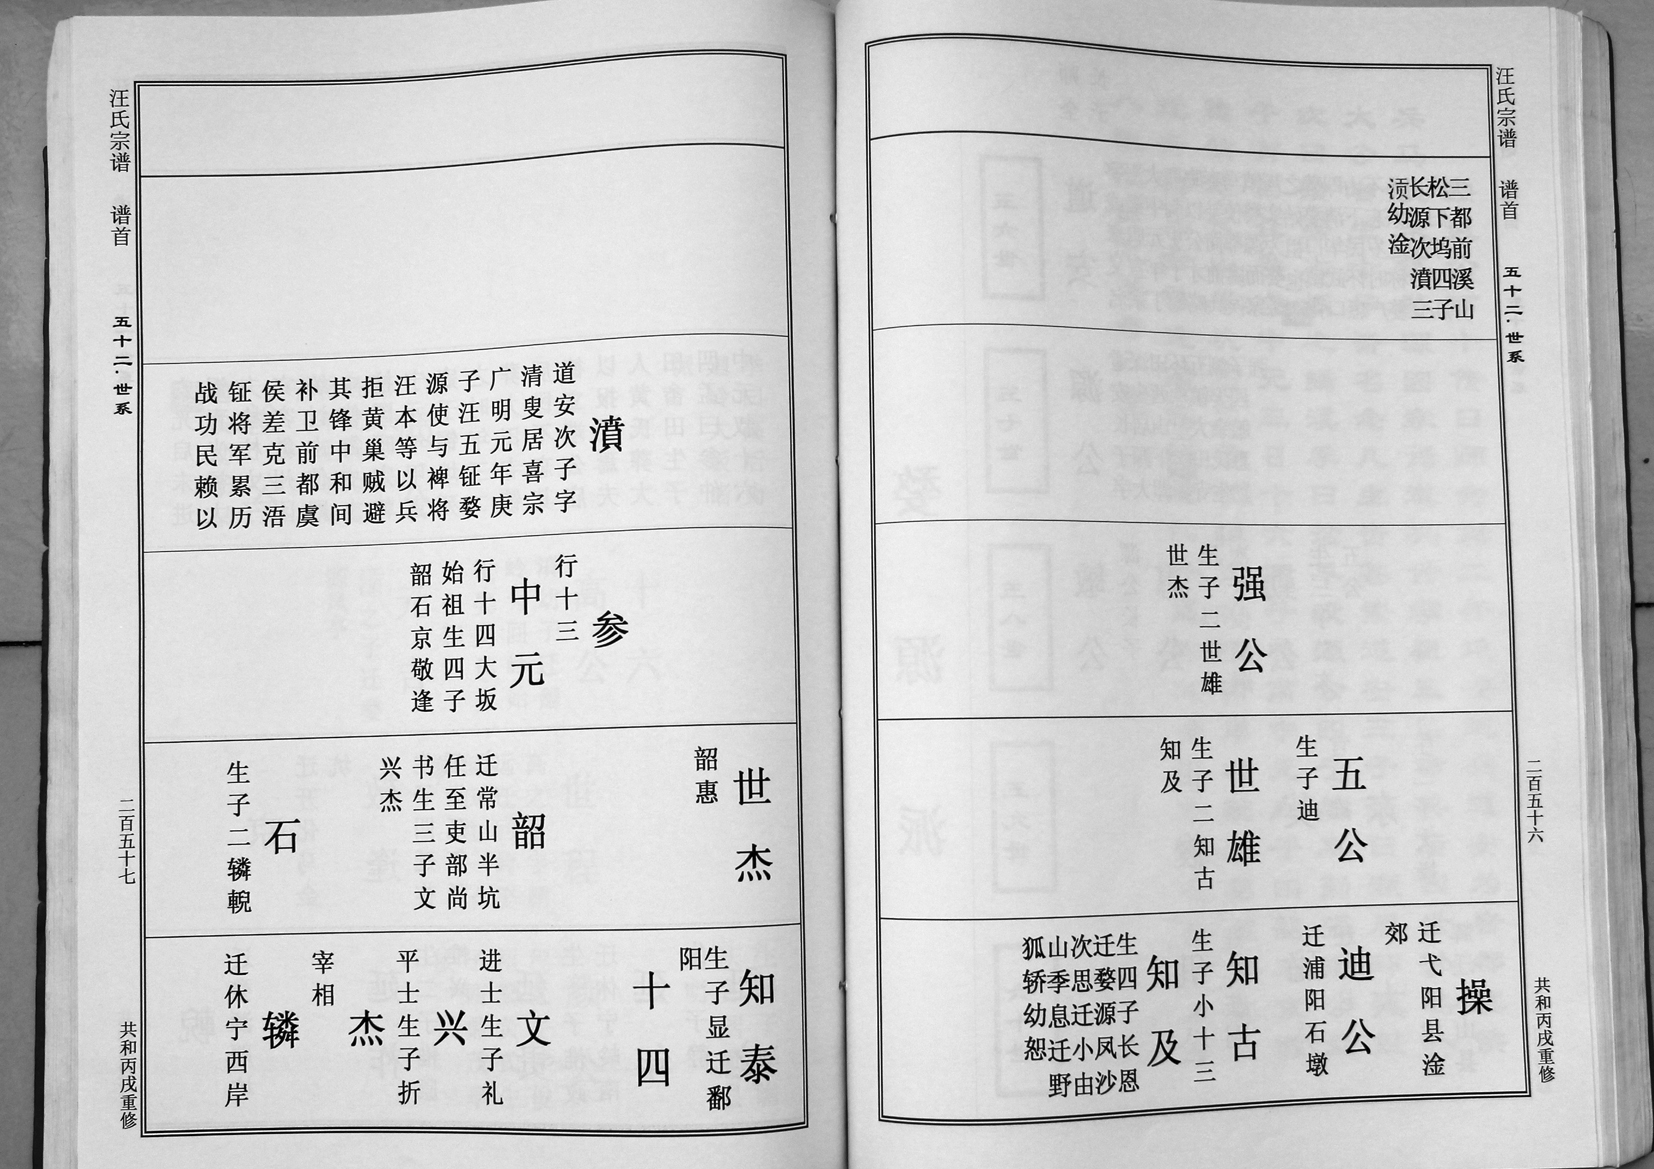 汪氏宗谱 谱首 五十二·世系 二百五十六 共和丙戌重修
三都前溪山
松下坞四子
长源次濆三
须幼淦
强公
生子二世雄
世杰
五公
生子迪
世雄
生子二知古
知及
操
迁弋阳县淦
郊
迪公
迁浦阳石墩
知古
生子小十三
知及
生四子长恩
迁婺源凤沙
次思迁小由
山季息迁野
狐轿幼恕
濆
道安次子字
清叟居喜宗
广明元年庚
子汪五钲婺
源使与裨将
汪本等以兵
拒黄巢贼避
其锋中和间
补卫前都虞
侯差克三浯
钲将军累历
战功民赖以
参
行十三
中元
行十四大坂
始祖生四子
韶石京敬逢
世杰
韶惠
韶
迁常山半坑
任至吏部尚
书生三子文
兴杰
石
生子二辚輗
知泰
生子显迁鄱
阳
十四
文
进士生子礼
兴
平士生子折
杰
宰相
辚
迁休宁西岸
汪氏宗谱 谱首 五十二·世系 二百五十七 共和丙戌重修